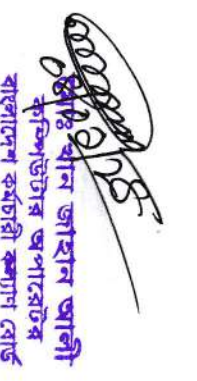 খান জাহান আলী
কম্পিউটার অপারেটর
বাংলাদেশ কর্মচারী কল্যাণ বোর্ড